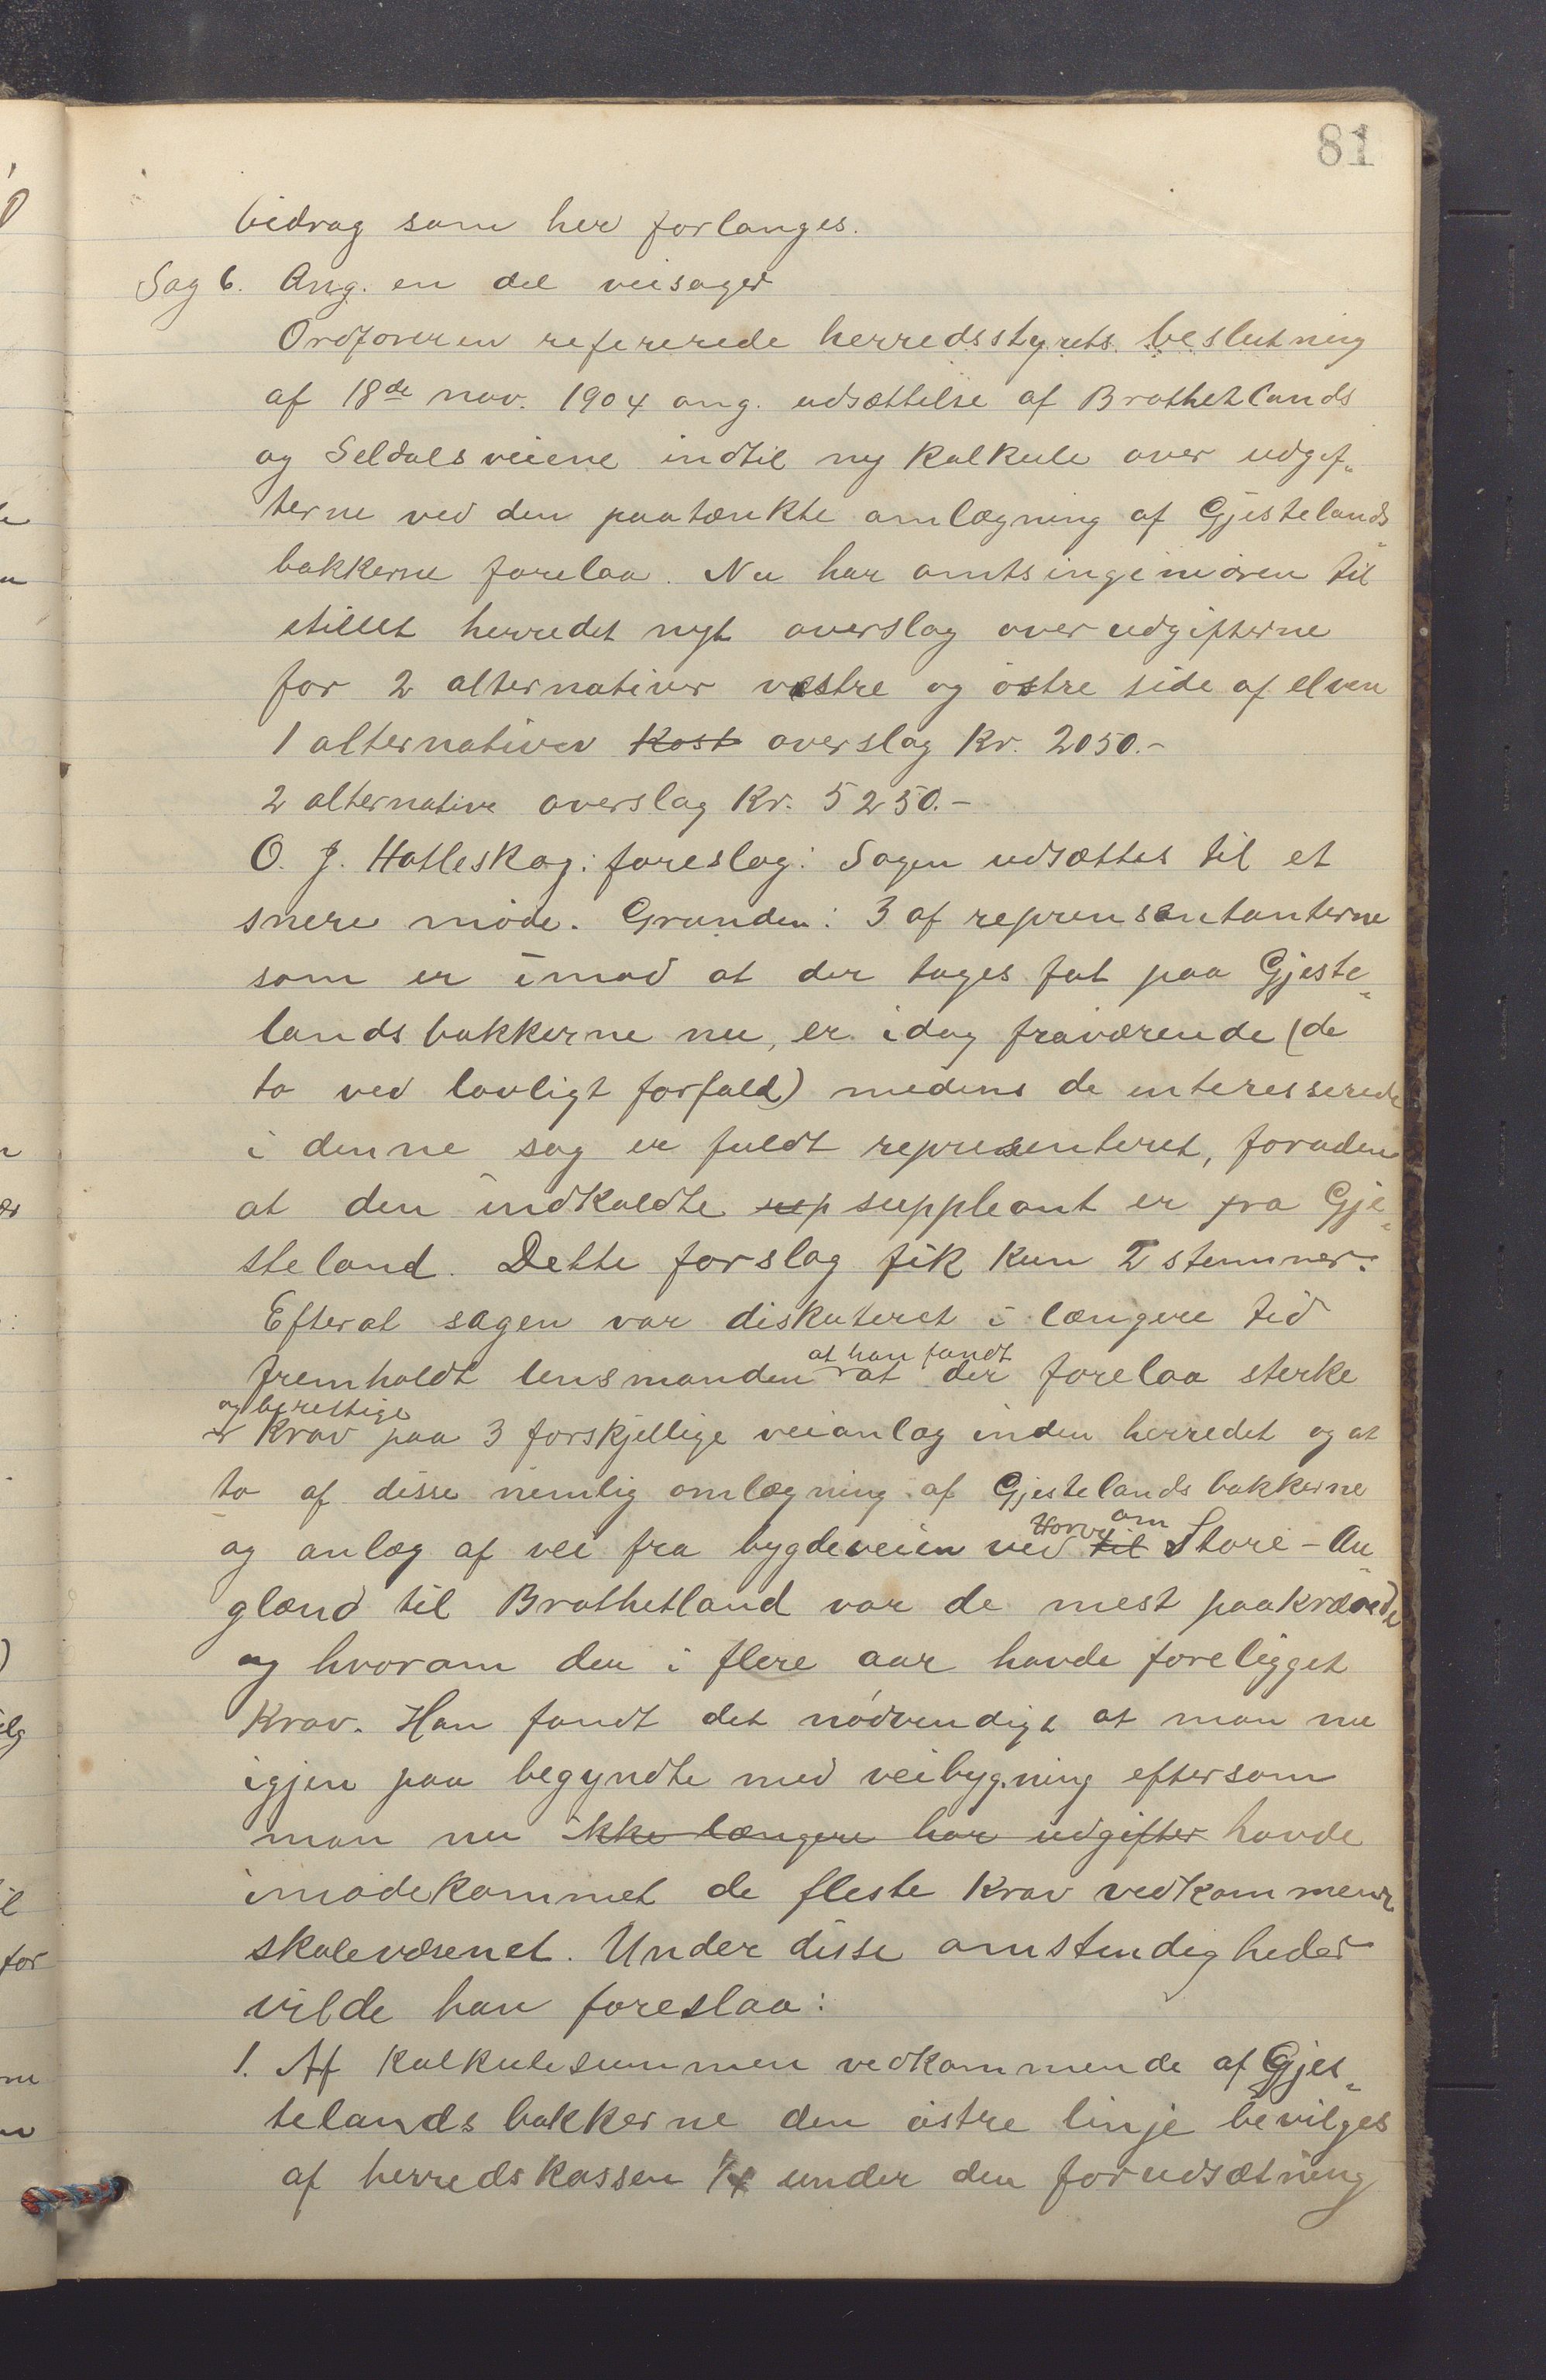 81
bidrag som her forlanges.
Sag 6. Ang. en del veisager
Ordføreren refererede herredsstyrets beslutning
af 18de nov. 1904 ang. udsættelse af Brathetlands
og Seldalsveiene indtil ny kalkule over udgif-
terne ved den paatænkte omlægning af Gjestelands-
bakkerne forelaa. Nu har amtsingeniøren til
stillet herredet nyt overslag over udgifterne
for 2 alternativer vestre og østre side af elven
1 alternativ Kost overslag Kr. 2050.-
2 alternative overslag Kr. 5250.-
O. J. Hatleskog: foreslog: Sagen udsættes til et
snere møde. Grunden: 3 af reprensentanterne
som er imod at der tages fat paa Gjeste-
landsbakkerne nu, er idag fraværende (de
to ved lovligt forfald) medens de interesserede
i denne sag er fuldt representeret, foruden
at den indkaldte rep suppleant er fra Gje-
steland. Dette forslag fik kun 2 stemmer.
Efterat sagen var diskuteret i længere tid
fremholdt lensmanden at han fandt at der forelaa sterke
og berettige krav paa 3 forskjellige veianlæg inden herredet og at
to af disse nemlig omlægning af Gjestelandsbakkerne
og anlæg af vei fra bygdeveien ved til Horve om Store-Au-
glænd til Brathetland var de mest paakrævede
og hvorom der i flere aar havde foreligget
krav. Han fandt det nødvendigt at man nu
igjen paa begyndte med veibygning eftersom
man nu ikke længere har udgifter havde
imødekommet de fleste krav vedkommende
skolevæsenet. Under disse omstendigheder
vilde han foreslaa:
1. Af kalkulesummen vedkommende af Gjes-
telandsbakkerne den østre linje bevilges
af herredskassen 1/4 under den forudsætning